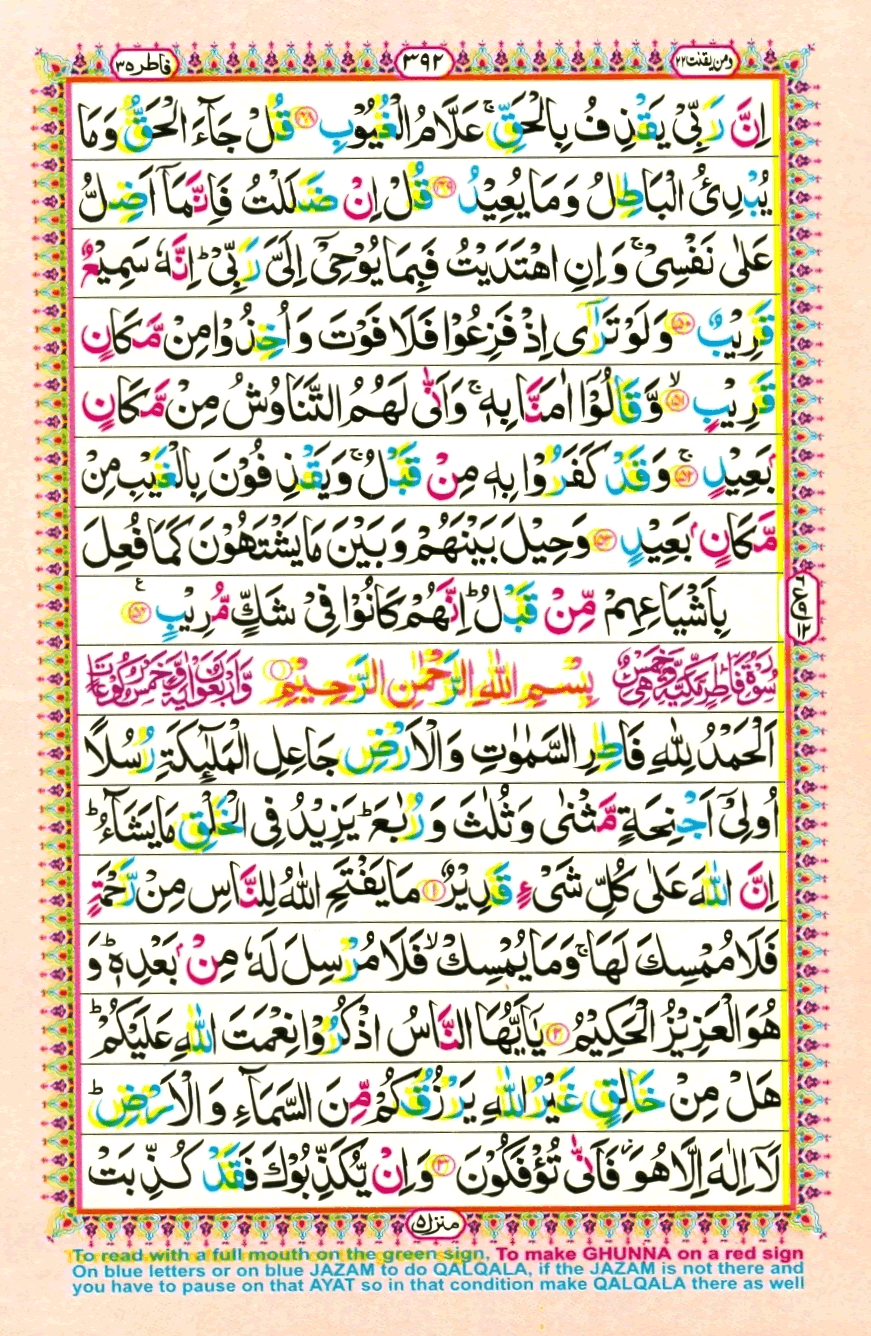 ومن یقنت ۲۲
۳۹۲
فاطر ۳۵
اِنَّ رَبِّیْ یَقْذِفُ بِالْحَقِّ ۚ عَلَّامُ الْغُیُوْبِ ﴿۴۸﴾ قُلْ جَآءَ الْحَقُّ وَمَا
یُبْدِئُ الْبَاطِلُ وَمَا یُعِیْدُ ﴿۴۹﴾ قُلْ اِنْ ضَلَلْتُ فَاِنَّمَاۤ اَضِلُّ
عَلٰی نَفْسِیْ ۚ وَاِنِ اهْتَدَیْتُ فَبِمَا یُوْحِیْۤ اِلَیَّ رَبِّیْ ؕ اِنَّهٗ سَمِیْعٌ
قَرِیْبٌ ﴿۵۰﴾ وَلَوْ تَرٰۤی اِذْ فَزِعُوْا فَلَا فَوْتَ وَاُخِذُوْا مِنْ مَّكَانٍ
قَرِیْبٍ ﴿۵۱﴾ۙ وَّقَالُوْۤا اٰمَنَّا بِهٖ ۚ وَاَنّٰی لَهُمُ التَّنَاوُشُ مِنْ مَّكَانٍ
بَعِیْدٍ ﴿۵۲﴾ۚ وَقَدْ كَفَرُوْا بِهٖ مِنْ قَبْلُ ۚ وَیَقْذِفُوْنَ بِالْغَیْبِ مِنْ
مَّكَانٍۭ بَعِیْدٍ ﴿۵۳﴾ وَحِیْلَ بَیْنَهُمْ وَبَیْنَ مَا یَشْتَهُوْنَ كَمَا فُعِلَ
بِاَشْیَاعِهِمْ مِّنْ قَبْلُ ؕ اِنَّهُمْ كَانُوْا فِیْ شَكٍّ مُّرِیْبٍ ﴿۵۴﴾ ع
سُوْرَةُ فَاطِرٍ مَّكِّیَّةٌ وَّهِیَ خَمْسٌ بِسْمِ اللّٰهِ الرَّحْمٰنِ الرَّحِیْمِ وَّاَرْبَعُوْنَ اٰیَةً وَّخَمْسُ رُكُوْعَاتٍ
اَلْحَمْدُ لِلّٰهِ فَاطِرِ السَّمٰوٰتِ وَالْاَرْضِ جَاعِلِ الْمَلٰٓئِكَةِ رُسُلًا
اُولِیْۤ اَجْنِحَةٍ مَّثْنٰی وَثُلٰثَ وَرُبٰعَ ؕ یَزِیْدُ فِی الْخَلْقِ مَا یَشَآءُ ؕ
اِنَّ اللّٰهَ عَلٰی كُلِّ شَیْءٍ قَدِیْرٌ ﴿۱﴾ مَا یَفْتَحِ اللّٰهُ لِلنَّاسِ مِنْ رَّحْمَةٍ
فَلَا مُمْسِكَ لَهَا ۚ وَمَا یُمْسِكْ ۙ فَلَا مُرْسِلَ لَهٗ مِنْۢ بَعْدِهٖ ؕ وَ
هُوَ الْعَزِیْزُ الْحَكِیْمُ ﴿۲﴾ یٰۤاَیُّهَا النَّاسُ اذْكُرُوْا نِعْمَتَ اللّٰهِ عَلَیْكُمْ ؕ
هَلْ مِنْ خَالِقٍ غَیْرُ اللّٰهِ یَرْزُقُكُمْ مِّنَ السَّمَآءِ وَالْاَرْضِ ؕ
لَاۤ اِلٰهَ اِلَّا هُوَ ۖ فَاَنّٰی تُؤْفَكُوْنَ ﴿۳﴾ وَاِنْ یُّكَذِّبُوْكَ فَقَدْ كُذِّبَتْ
منزل ۵
To read with a full mouth on the green sign, To make GHUNNA on a red sign
On blue letters or on blue JAZAM to do QALQALA, if the JAZAM is not there and
you have to pause on that AYAT so in that condition make QALQALA there as well